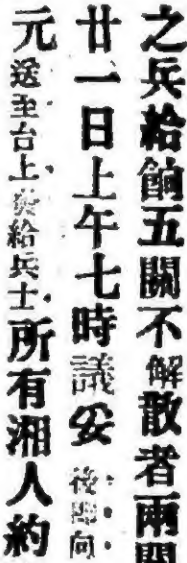 之兵給餉五關不解散者兩關
廿一日上午七時議妥後卽向
元送至台上發給兵士所有湘人約